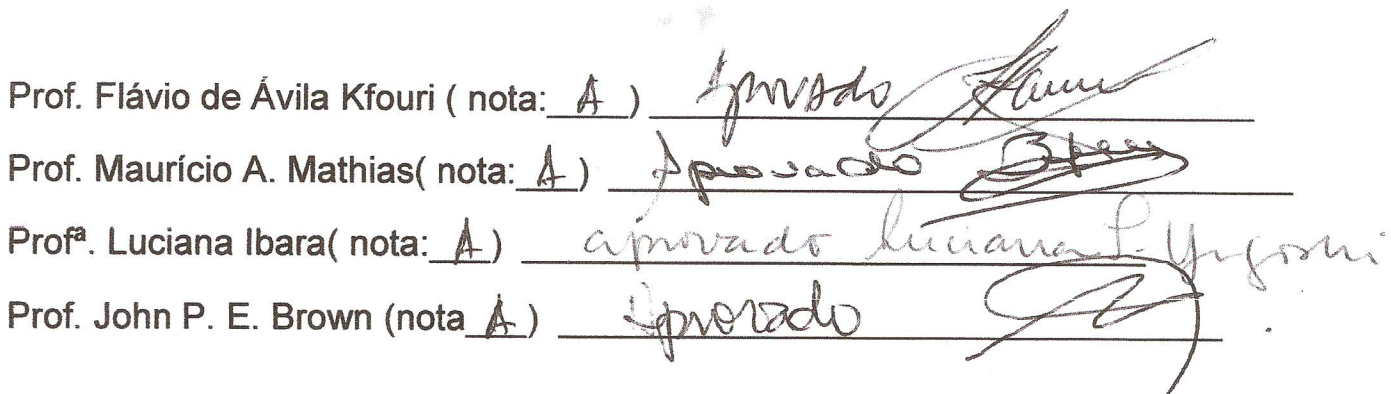 Prof. Flávio de Ávila Kfouri ( nota: A ) Aprovado
Prof. Maurício A. Mathias( nota: A ) Aprovado
Profª. Luciana Ibara( nota: A ) aprovado Luciana
Prof. John P. E. Brown (nota A ) Aprovado